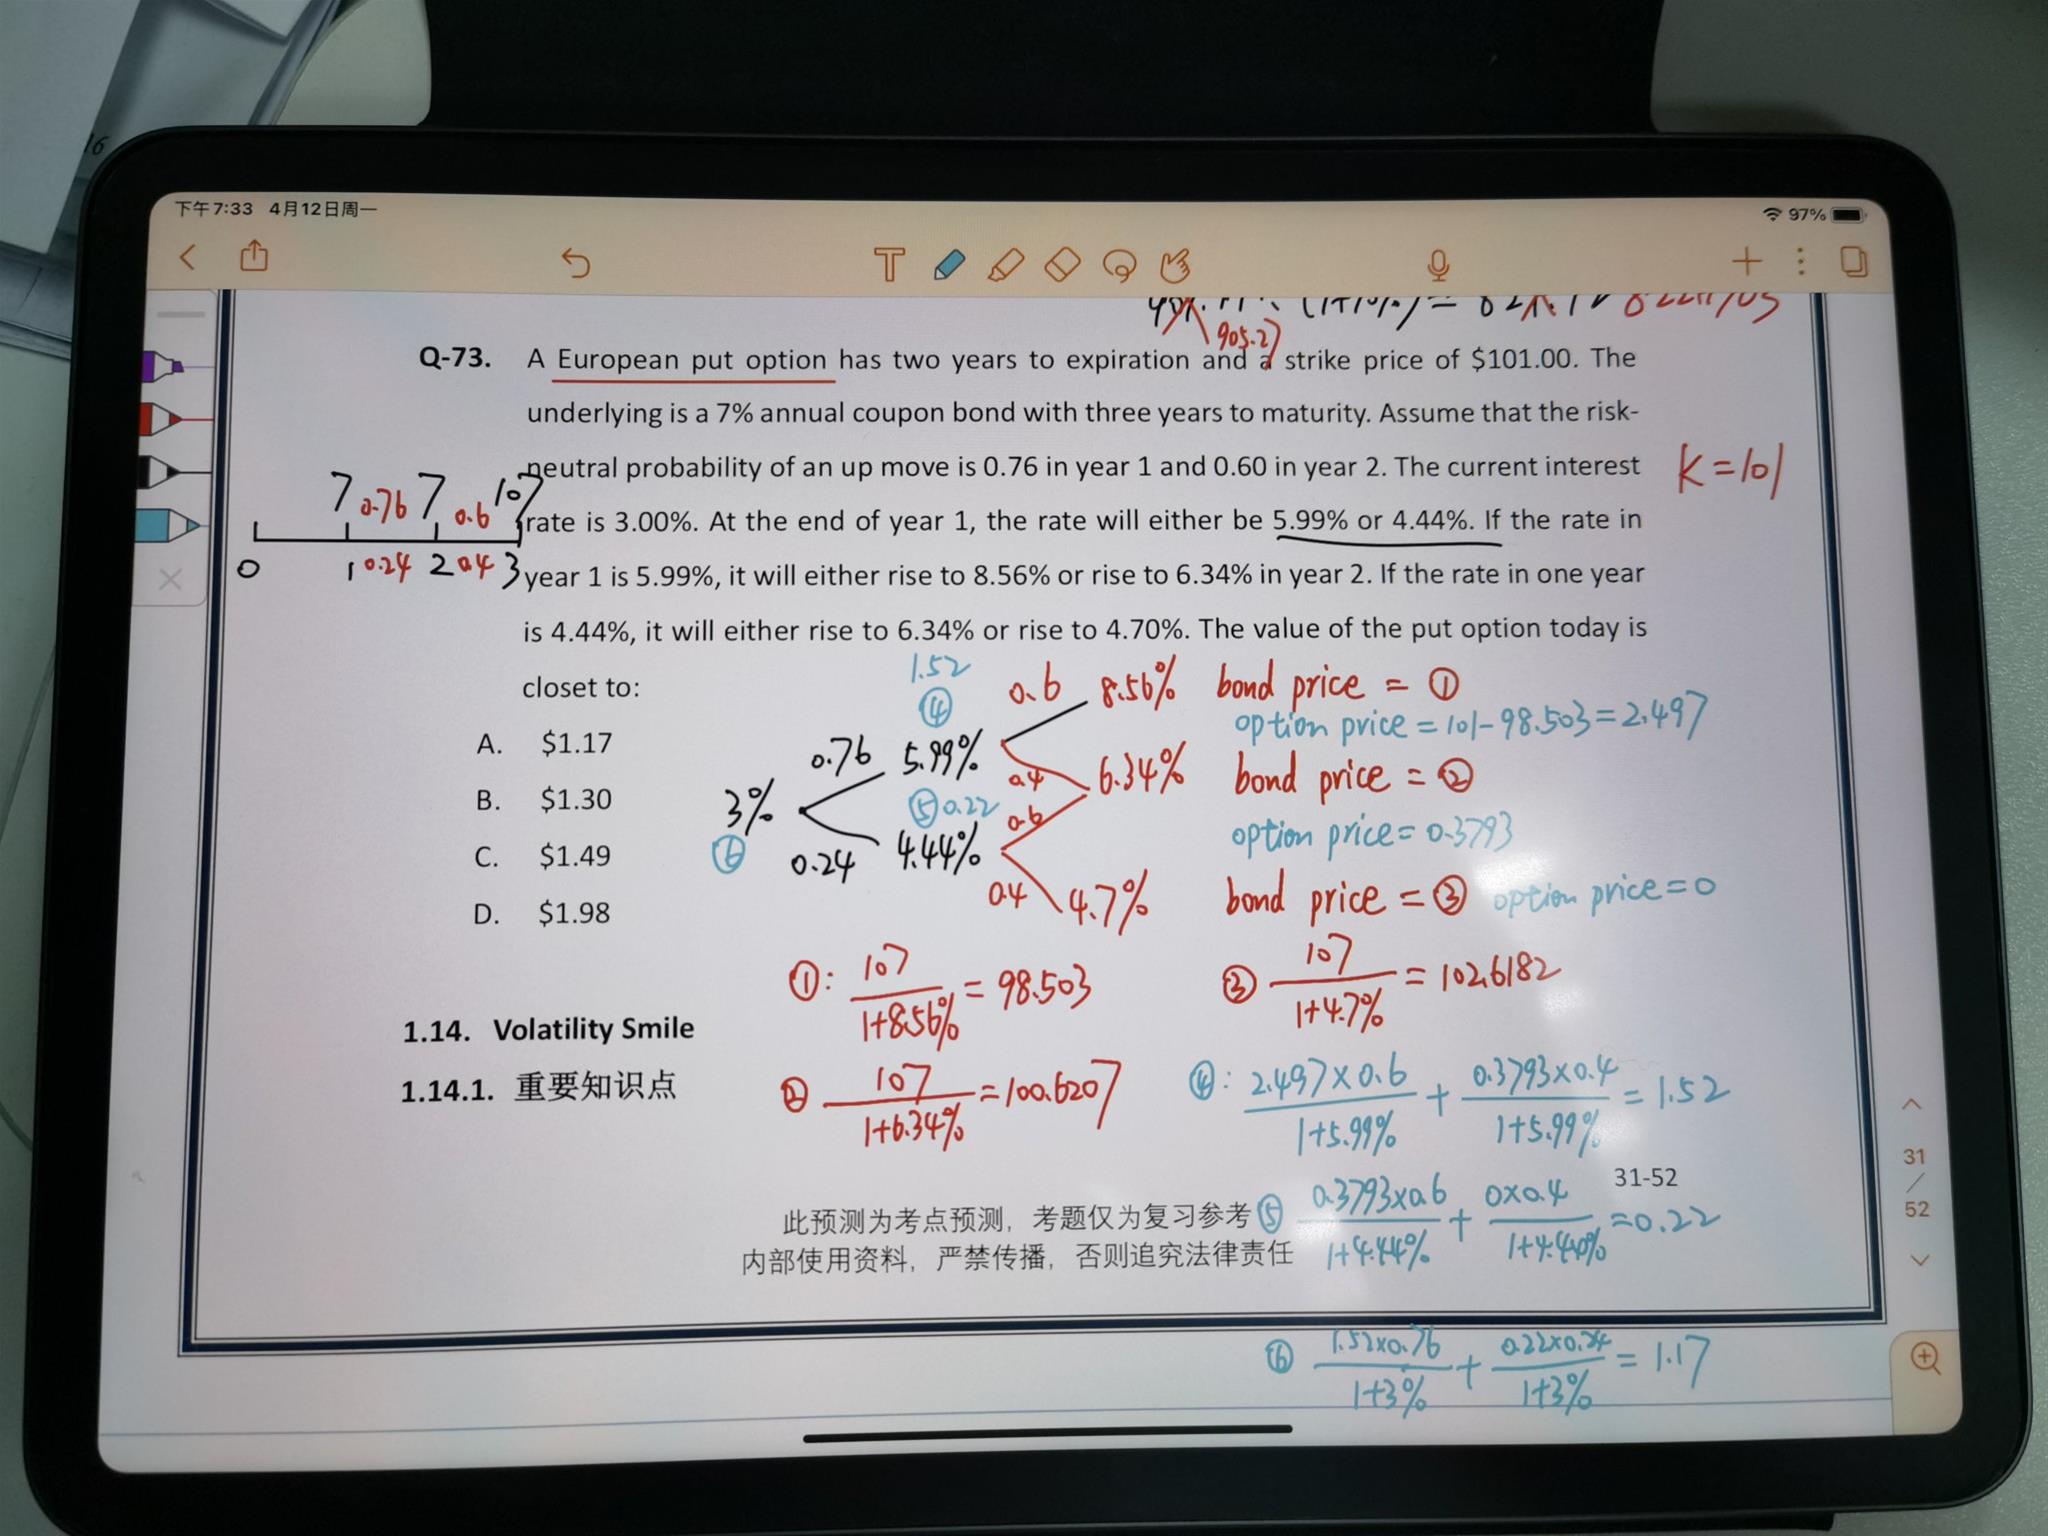 下午7:33 4月12日周一
97%
905.27
Q-73. A European put option has two years to expiration and a strike price of $101.00. The
underlying is a 7% annual coupon bond with three years to maturity. Assume that the risk-
neutral probability of an up move is 0.76 in year 1 and 0.60 in year 2. The current interest
K=101
rate is 3.00%. At the end of year 1, the rate will either be 5.99% or 4.44%. If the rate in
year 1 is 5.99%, it will either rise to 8.56% or rise to 6.34% in year 2. If the rate in one year
is 4.44%, it will either rise to 6.34% or rise to 4.70%. The value of the put option today is
closet to:
7 0.76 7 0.6 107
0 1 0.24 2 0.4 3
A. $1.17
B. $1.30
C. $1.49
D. $1.98
1.52
④
0.6 8.56% bond price = ①
option price = 101-98.503=2.497
0.76 5.99%
0.4 6.34% bond price = ②
3% ⑤ 0.22 0.6
option price = 0.3793
⑥ 0.24 4.44%
0.4 4.7% bond price = ③ option price=0
①: 107 / 1+8.56% = 98.503
③ 107 / 1+4.7% = 102.6182
1.14. Volatility Smile
1.14.1. 重要知识点
② 107 / 1+6.34% =100.6207
④: 2.497×0.6 / 1+5.99% + 0.3793×0.4 / 1+5.99% = 1.52
31-52
⑤ 0.3793×0.6 / 1+4.44% + 0×0.4 / 1+4.44% =0.22
此预测为考点预测，考题仅为复习参考
内部使用资料，严禁传播，否则追究法律责任
⑥ 1.52×0.76 / 1+3% + 0.22×0.24 / 1+3% = 1.17
31
/
52